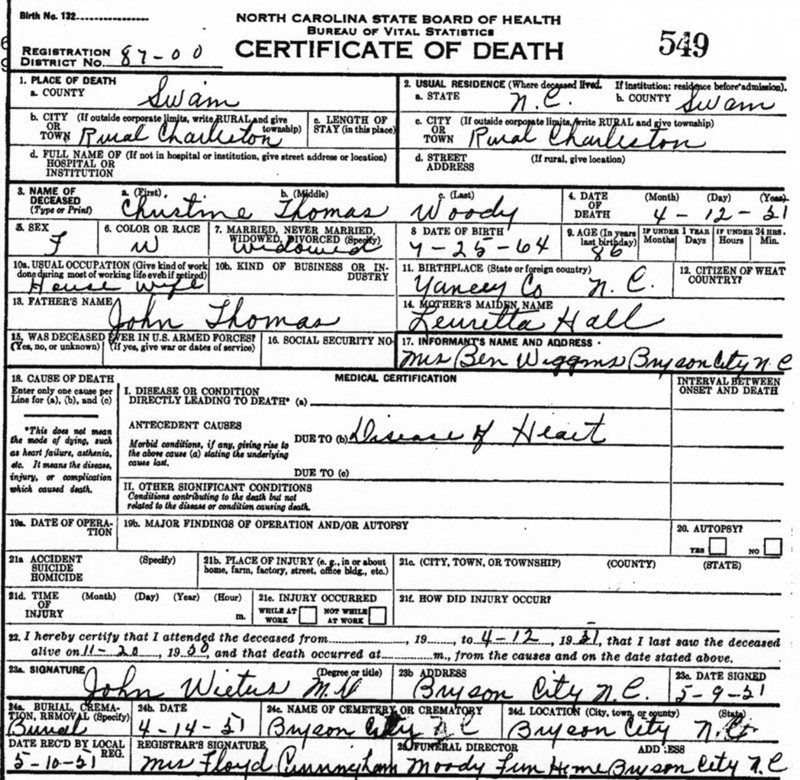 Birth No. 132
NORTH CAROLINA STATE BOARD OF HEALTH
BUREAU OF VITAL STATISTICS
REGISTRATION DISTRICT No. 87-00
CERTIFICATE OF DEATH
549
1. PLACE OF DEATH
a. COUNTY Swain
2. USUAL RESIDENCE (Where deceased lived. If institution: residence before admission).
a. STATE N.C. b. COUNTY Swain
b. CITY OR TOWN (If outside corporate limits, write RURAL and give township) Rural Charleston
c. LENGTH OF STAY (in this place)
c. CITY OR TOWN (If outside corporate limits, write RURAL and give township) Rural Charleston
d. FULL NAME OF HOSPITAL OR INSTITUTION (If not in hospital or institution, give street address or location)
d. STREET ADDRESS (If rural, give location)
3. NAME OF DECEASED (Type or Print)
a. (First) b. (Middle) c. (Last)
Christine Thomas Woody
4. DATE OF DEATH (Month) (Day) (Year)
4-12-51
5. SEX F
6. COLOR OR RACE W
7. MARRIED, NEVER MARRIED, WIDOWED, DIVORCED (Specify) Widowed
8 DATE OF BIRTH 7-25-64
9. AGE (In years last birthday) 86
IF UNDER 1 YEAR Months Days
IF UNDER 24 HRS. Hours Min.
10a. USUAL OCCUPATION (Give kind of work done during most of working life even if retired) House Wife
10b. KIND OF BUSINESS OR INDUSTRY
11. BIRTHPLACE (State or foreign country) Yancey Co N.C.
12. CITIZEN OF WHAT COUNTRY?
13. FATHER'S NAME John Thomas
14. MOTHER'S MAIDEN NAME Leuretta Hall
15. WAS DECEASED EVER IN U.S. ARMED FORCES? (Yes, no, or unknown) (If yes, give war or dates of service)
16. SOCIAL SECURITY NO.
17. INFORMANT'S NAME AND ADDRESS
Mrs Ben Wiggins Bryson City N C
18. CAUSE OF DEATH
Enter only one cause per Line for (a), (b), and (c)
*This does not mean the mode of dying, such as heart failure, asthenia, etc. It means the disease, injury, or complication which caused death.
MEDICAL CERTIFICATION
INTERVAL BETWEEN ONSET AND DEATH
I. DISEASE OR CONDITION
DIRECTLY LEADING TO DEATH* (a)
ANTECEDENT CAUSES
Morbid conditions, if any, giving rise to the above cause (a) stating the underlying cause last.
DUE TO (b) Disease of Heart
DUE TO (c)
II. OTHER SIGNIFICANT CONDITIONS
Conditions contributing to the death but not related to the disease or condition causing death.
19a. DATE OF OPERATION
19b. MAJOR FINDINGS OF OPERATION AND/OR AUTOPSY
20. AUTOPSY?
YES NO
21a ACCIDENT SUICIDE HOMICIDE (Specify)
21b. PLACE OF INJURY (e. g., in or about home, farm, factory, street, office bldg., etc.)
21c. (CITY, TOWN, OR TOWNSHIP) (COUNTY) (STATE)
21d. TIME OF INJURY (Month) (Day) (Year) (Hour) m.
21e. INJURY OCCURRED
WHILE AT WORK NOT WHILE AT WORK
21f. HOW DID INJURY OCCUR?
22. I hereby certify that I attended the deceased from , 19 , to 4-12, 1951, that I last saw the deceased
alive on 11-20, 1950, and that death occurred at m., from the causes and on the date stated above.
23a. SIGNATURE (Degree or title)
John Wietus M.D
23b ADDRESS
Bryson City N.C.
23c. DATE SIGNED
5-9-51
24a. BURIAL, CREMATION, REMOVAL (Specify) Burial
24b. DATE 4-14-51
24c. NAME OF CEMETERY OR CREMATORY Bryson City N C
24d. LOCATION (City, town, or county) (State) Bryson City N.C.
DATE REC'D BY LOCAL REG. 5-10-51
REGISTRAR'S SIGNATURE Mrs Floyd Cunningham
FUNERAL DIRECTOR ADDRESS
Moody Fun Home Bryson City N.C